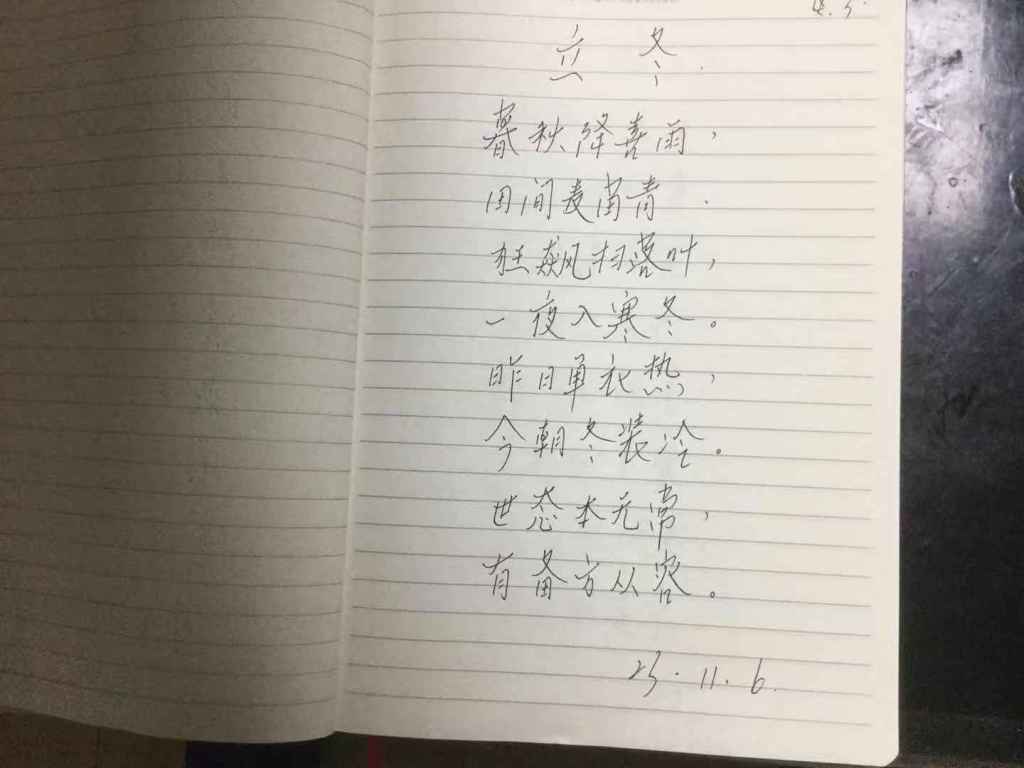 立冬
暮秋降喜雨，
田间麦苗青.
狂飙扫落叶，
一夜入寒冬。
昨日单衣热，
今朝冬装冷。
世态本无常，
有备方从容。
23.11.6